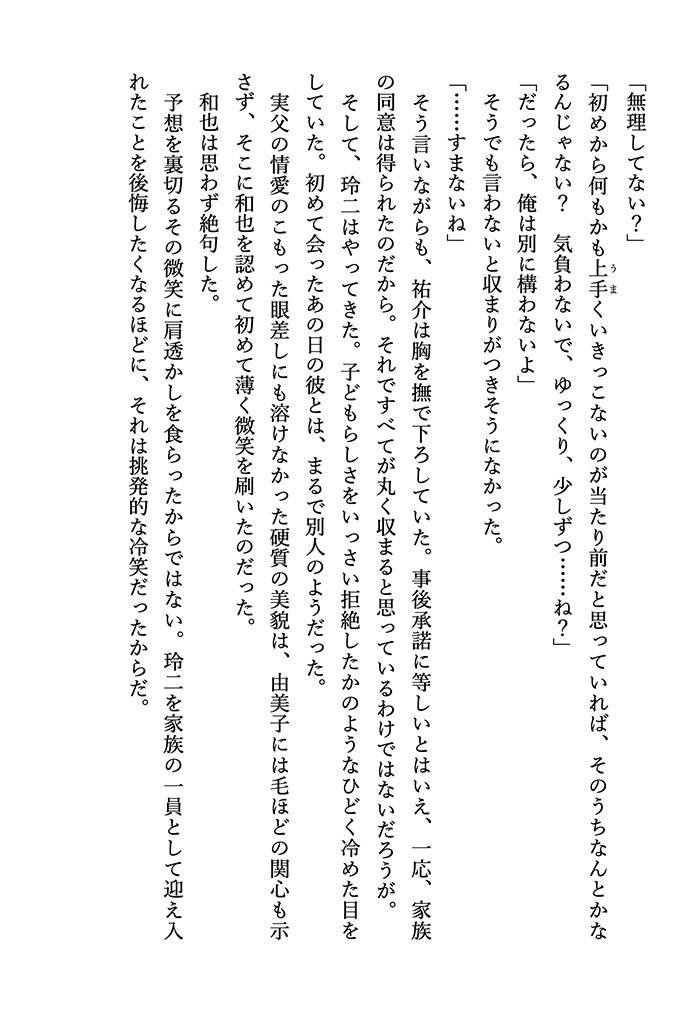 「無理してない？」
「初めから何もかも上手くいきっこないのが当たり前だと思っていれば、そのうちなんとかな
るんじゃない？　気負わないで、ゆっくり、少しずつ……ね？」
「だったら、俺は別に構わないよ」
そうでも言わないと収まりがつきそうになかった。
「……すまないね」
そう言いながらも、祐介は胸を撫で下ろしていた。事後承諾に等しいとはいえ、一応、家族
の同意は得られたのだから。それですべてが丸く収まると思っているわけではないだろうが。
そして、玲二はやってきた。子どもらしさをいっさい拒絶したかのようなひどく冷めた目を
していた。初めて会ったあの日の彼とは、まるで別人のようだった。
実父の情愛のこもった眼差しにも溶けなかった硬質の美貌は、由美子には毛ほどの関心も示
さず、そこに和也を認めて初めて薄く微笑を刷いたのだった。
和也は思わず絶句した。
予想を裏切るその微笑に肩透かしを食らったからではない。玲二を家族の一員として迎え入
れたことを後悔したくなるほどに、それは挑発的な冷笑だったからだ。
うま